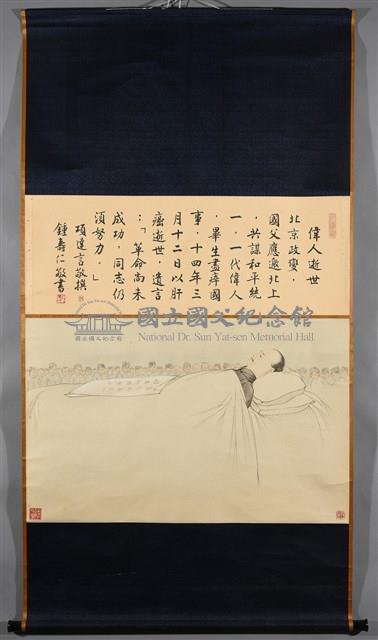 偉人逝世
北京政變，
國父應邀北上
，共謀和平統
一，一代偉人
，畢生盡瘁國
事，十四年三
月十二日以肝
癌逝世，遺言
：「革命尚未
成功，同志仍
須努力。」
項達言敬撰
鍾壽仁敬書
國立國父紀念館
National Dr. Sun Yat-sen Memorial Hall
國立國父紀念館